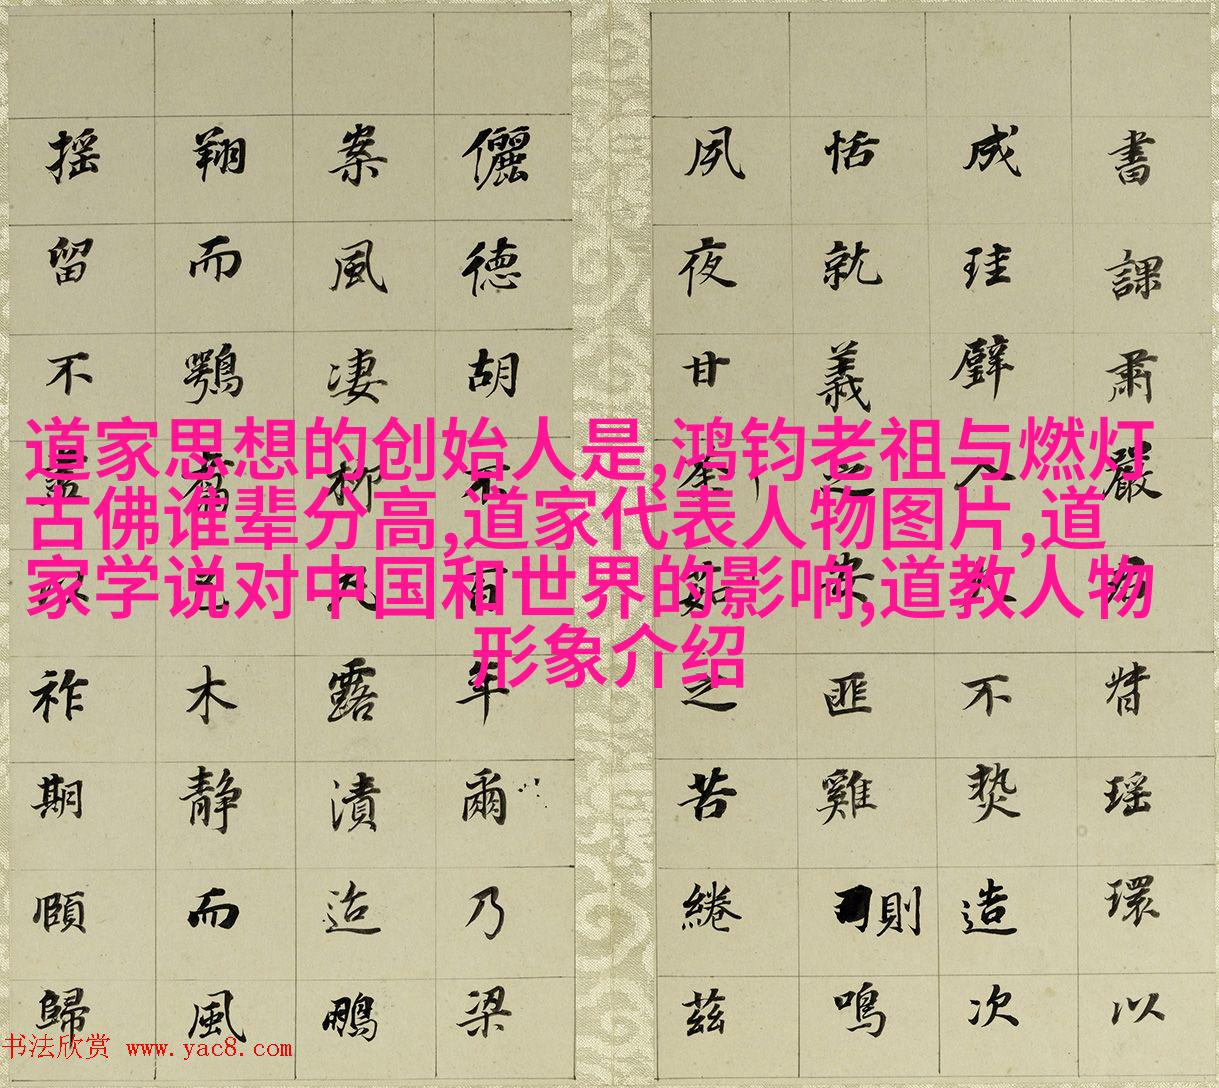 道家思想的创始人是,鸿钧老祖与燃灯
古佛谁辈分高,道家代表人物图片,道
家学说对中国和世界的影响,道教人物
形象介绍
書課肅嚴瑶環以
成珪璧人不爇造次
恬就義之安匪雞則鳴
夙夜甘荼茹之苦綣茲
儷德胡不百年爾乃梁
案風凄柳露漬迨鵬
翔而鶚薦木靜而風
摇留不靈祚期頤歸
书法欣赏 www.yac8.com